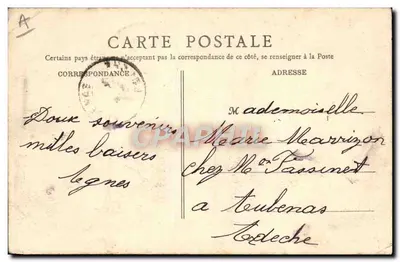 A
CARTE POSTALE
Certains pays étrangers n'acceptant pas la correspondance de ce côté, se renseigner à la Poste
CORRESPONDANCE
ADRESSE
Doux souvenirs
milles baisers
Agnes
Mademoiselle
Marie Marrizon
chez Mer Passinet
a Aubenas
Ardeche